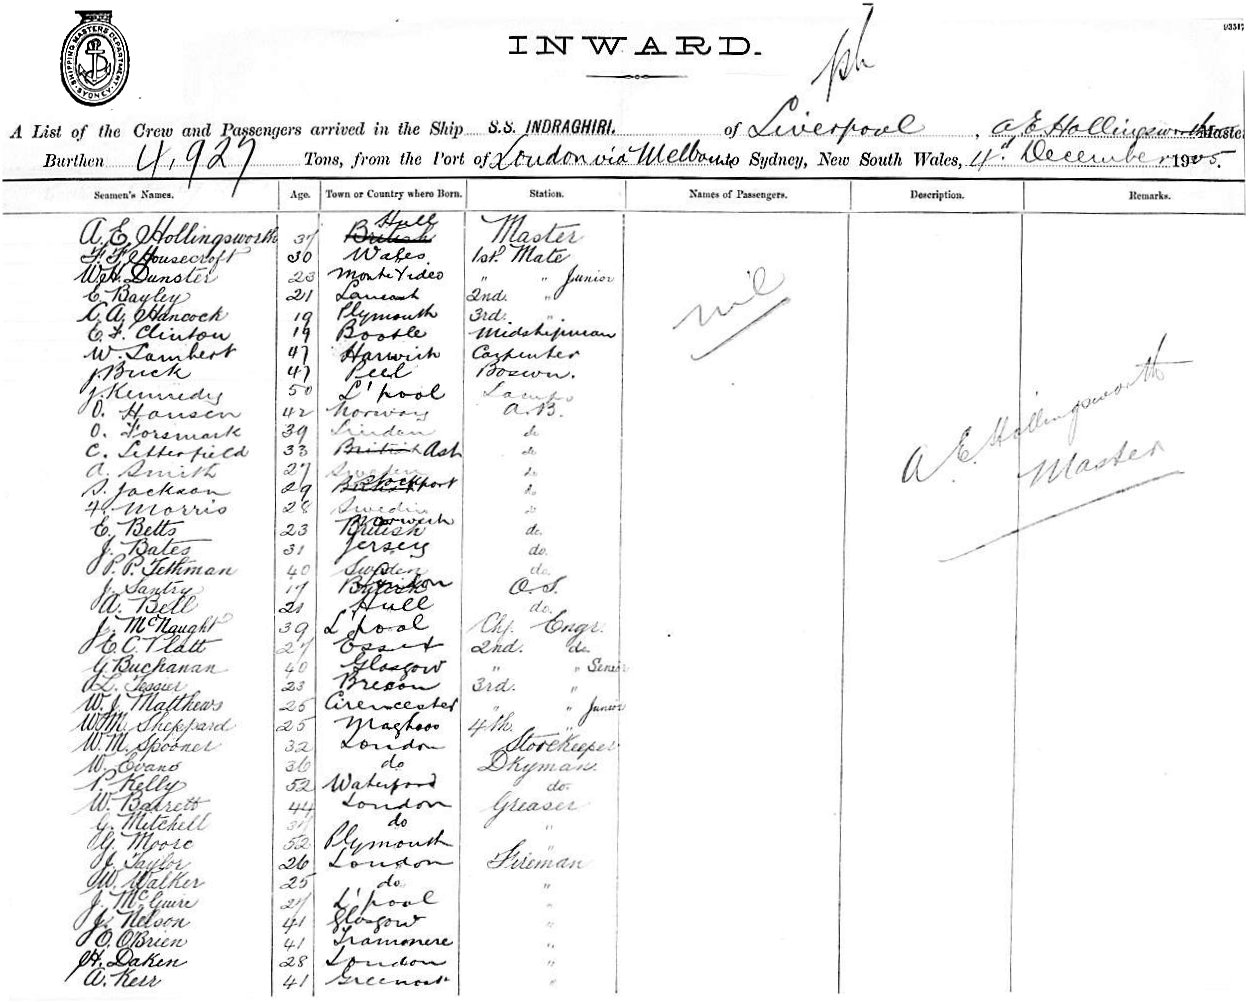 SHIPPING MASTERS DEPARTMENT SYDNEY
93517
INWARD.
A List of the Crew and Passengers arrived in the Ship S.S. INDRAGHIRI. of Liverpool, A E Hollingsworth Master
Burthen 4,927 Tons, from the Port of London via Melbourne to Sydney, New South Wales, 4th December 1905.
Seamen's Names. Age. Town or Country where Born. Station. Names of Passengers. Description. Remarks.
Hull
A. E. Hollingsworth 37 British Master
F. F. Housecroft 30 Wales 1st. Mate
W.H. Dunster 23 Monte Video " " Junior
E. Bayley 21 Lancash 2nd. "
C. A. Hancock 19 Plymouth 3rd. "
nil
E. F. Clinton 19 Bootle Midshipman
W. Lambert 47 Harwich Carpenter
J. Buck 47 Peel Boswn.
J. Kennedy 50 L'pool Lamps
O. Hansen 42 Norway A.B.
O. Forsmark 39 do
C. Litterfield 33 British Ash do
A. Smith 27 Sweden do
S. Jackson 29 Stockport do
H. Morris 28 Sweden do
A E. Hollingsworth
Master
Norwich
E. Betts 23 British do.
J. Bates 31 Jersey do.
P. P. Tethman 40 Sweden do.
J. Santry 17 British London O.S.
A. Bell 21 Hull do.
J. McNaught 39 L'pool Chf. Engr.
E. C. Platt 27 Essex 2nd. do.
G. Buchanan 40 Glasgow " " Senior
L. Tessier 23 Brecon 3rd. "
W. J. Matthews 25 Cirencester " " Junior
W. M. Sheppard 25 4th. "
W. M. Spooner 32 London Storekeeper
W. Evans 36 do Dkyman.
P. Kelly 52 Waterford do.
W. Barrett 44 London Greaser
G. Mitchell do "
G. Moore 52 Plymouth "
J. Taylor 26 London Fireman
W. Walker 25 do "
J. McGuire 27 L'pool "
J. Nelson 41 Glasgow "
O. O'Brien 41 Tranmere "
H. Daken 28 London "
A. Kerr 41 Greenock "